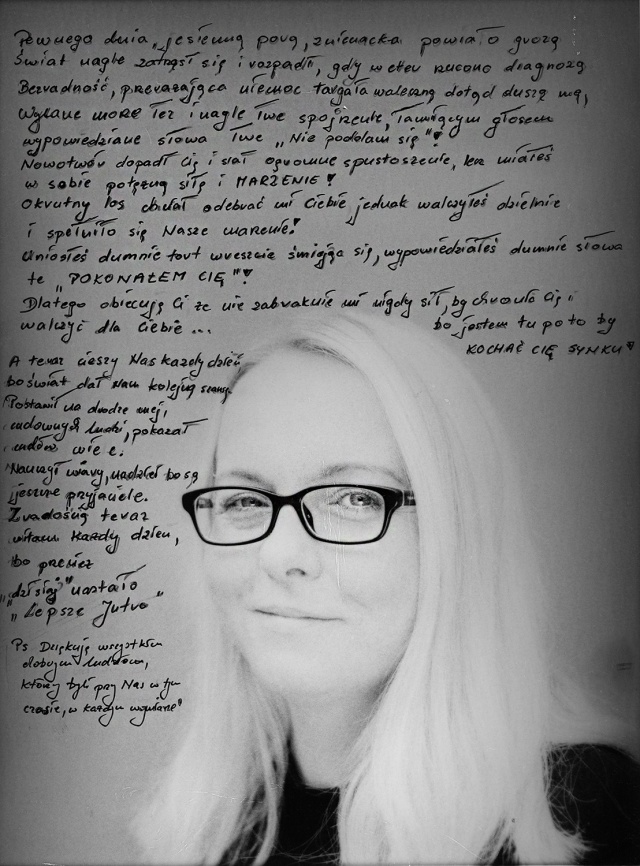 Pewnego dnia, jesienną porą, znienacka powiało grozą
Świat nagle zatrząsł się i rozpadł, gdy w eter rzucono diagnozą
Bezradność, przerażająca niemoc targała waleczną dotąd duszą mą,
Wylane morze łez i nagle Twe spojrzenie, łamiącym głosem
wypowiedziane słowa Twe „Nie poddam się"!
Nowotwór dopadł Cię i siał ogromne spustoszenie, lecz miałeś
w sobie potężną siłę i MARZENIE!
Okrutny los chciał odebrać mi Ciebie, jednak walczyłeś dzielnie
i spełniło się Nasze marzenie!
Uniosłeś dumnie tort wreszcie śmiejąc się, wypowiedziałeś dumnie słowa
te „POKONAŁEM CIĘ"!
Dlatego obiecuję Ci że nie zabraknie mi nigdy sił, by chronić Cię i
walczyć dla Ciebie ... bo jestem tu po to by
KOCHAĆ CIĘ SYNKU
A teraz cieszy Nas każdy dzień
bo świat dał Nam kolejną szansę.
Postawił na drodze mej,
cudownych ludzi, pokazał
cudów wiele.
Nauczył wiary, nadziei bo są
jeszcze przyjaciele.
Z radością teraz
witam każdy dzień,
bo przecież
„dzisiaj" nastało
„Lepsze Jutro"
Ps Dziękuję wszystkim
dobrym ludziom,
którzy byli przy Nas w tym
czasie, w każdym wymiarze